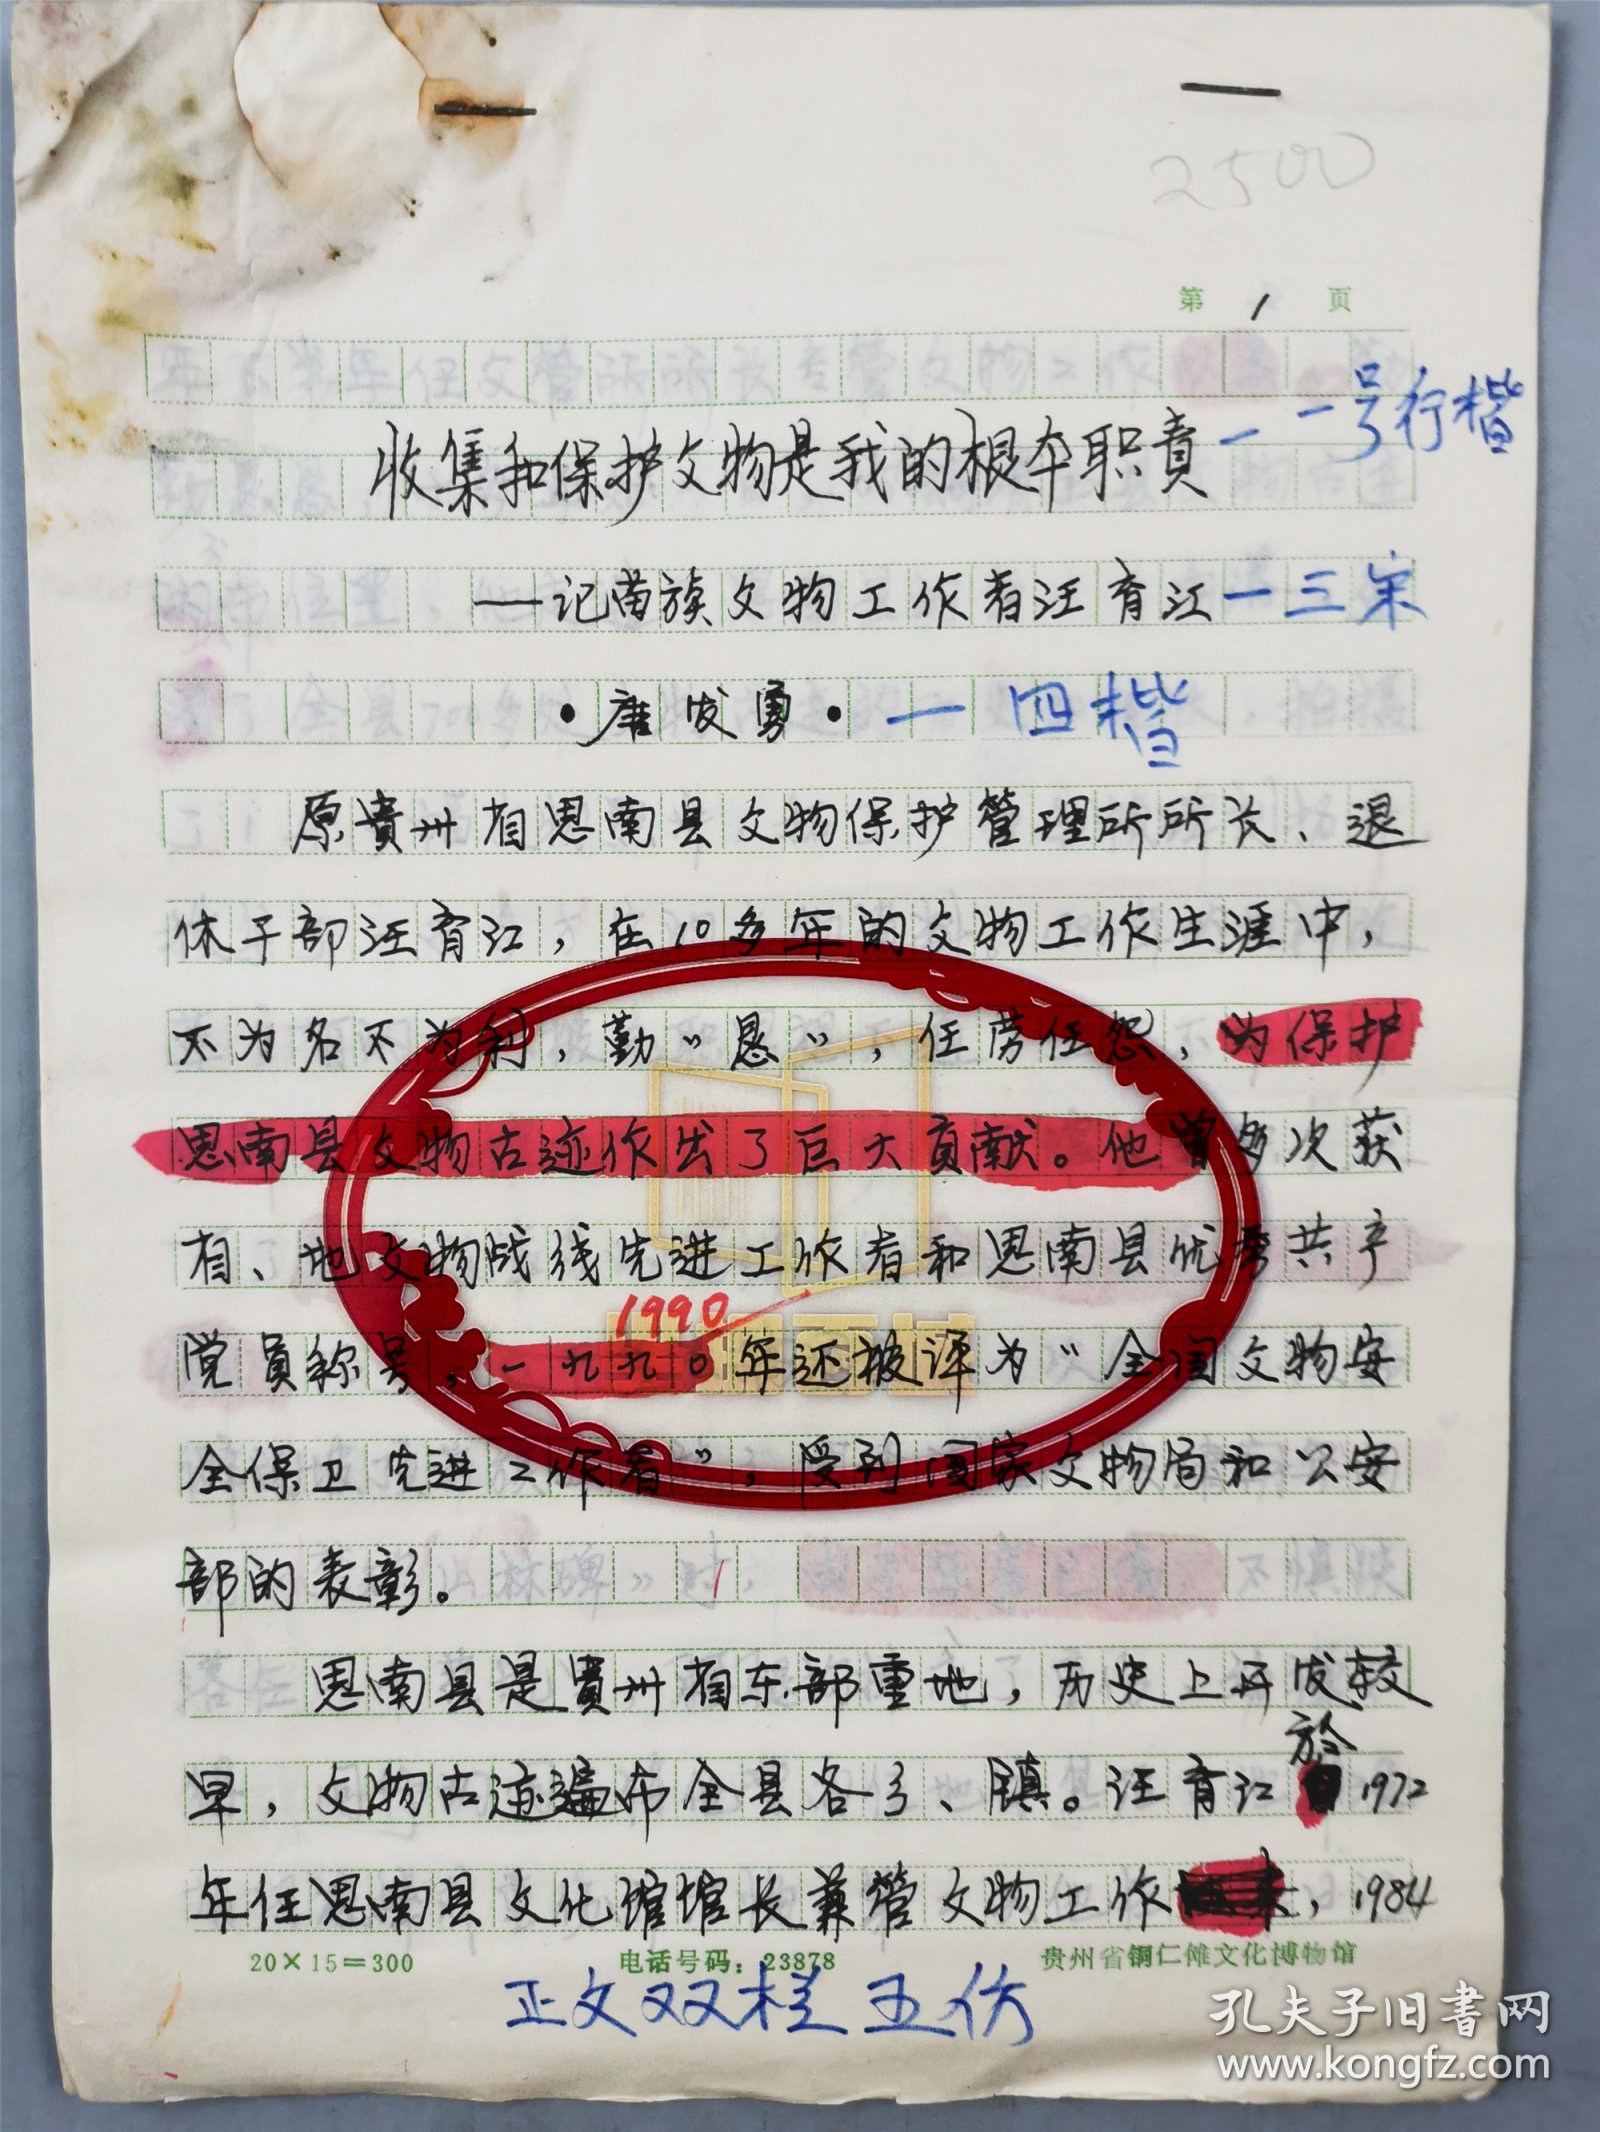 2500
第 1 页
收集和保护文物是我的根本职责 一 一号行楷
——记苗族文物工作者汪育江 一 三宋
·唐发勇· 一 四楷
原贵州省思南县文物保护管理所所长、退
休干部汪育江，在10多年的文物工作生涯中，
不为名不为利，勤"恳"，任劳任怨，为保护
思南县文物古迹作出了巨大贡献。他曾多次获
省、地文物战线先进工作者和思南县优秀共产
1990
党员称号，一九九0年还被评为"全国文物安
全保卫先进工作者"，受到国家文物局和公安
部的表彰。
思南县是贵州省东部重地，历史上开发较
於
早，文物古迹遍布全县各乡、镇。汪育江 1972
年任思南县文化馆馆长兼管文物工作，1984
20×15=300 电话号码：23878 贵州省铜仁傩文化博物馆
正文双栏五仿
孔夫子旧书网
www.kongfz.com